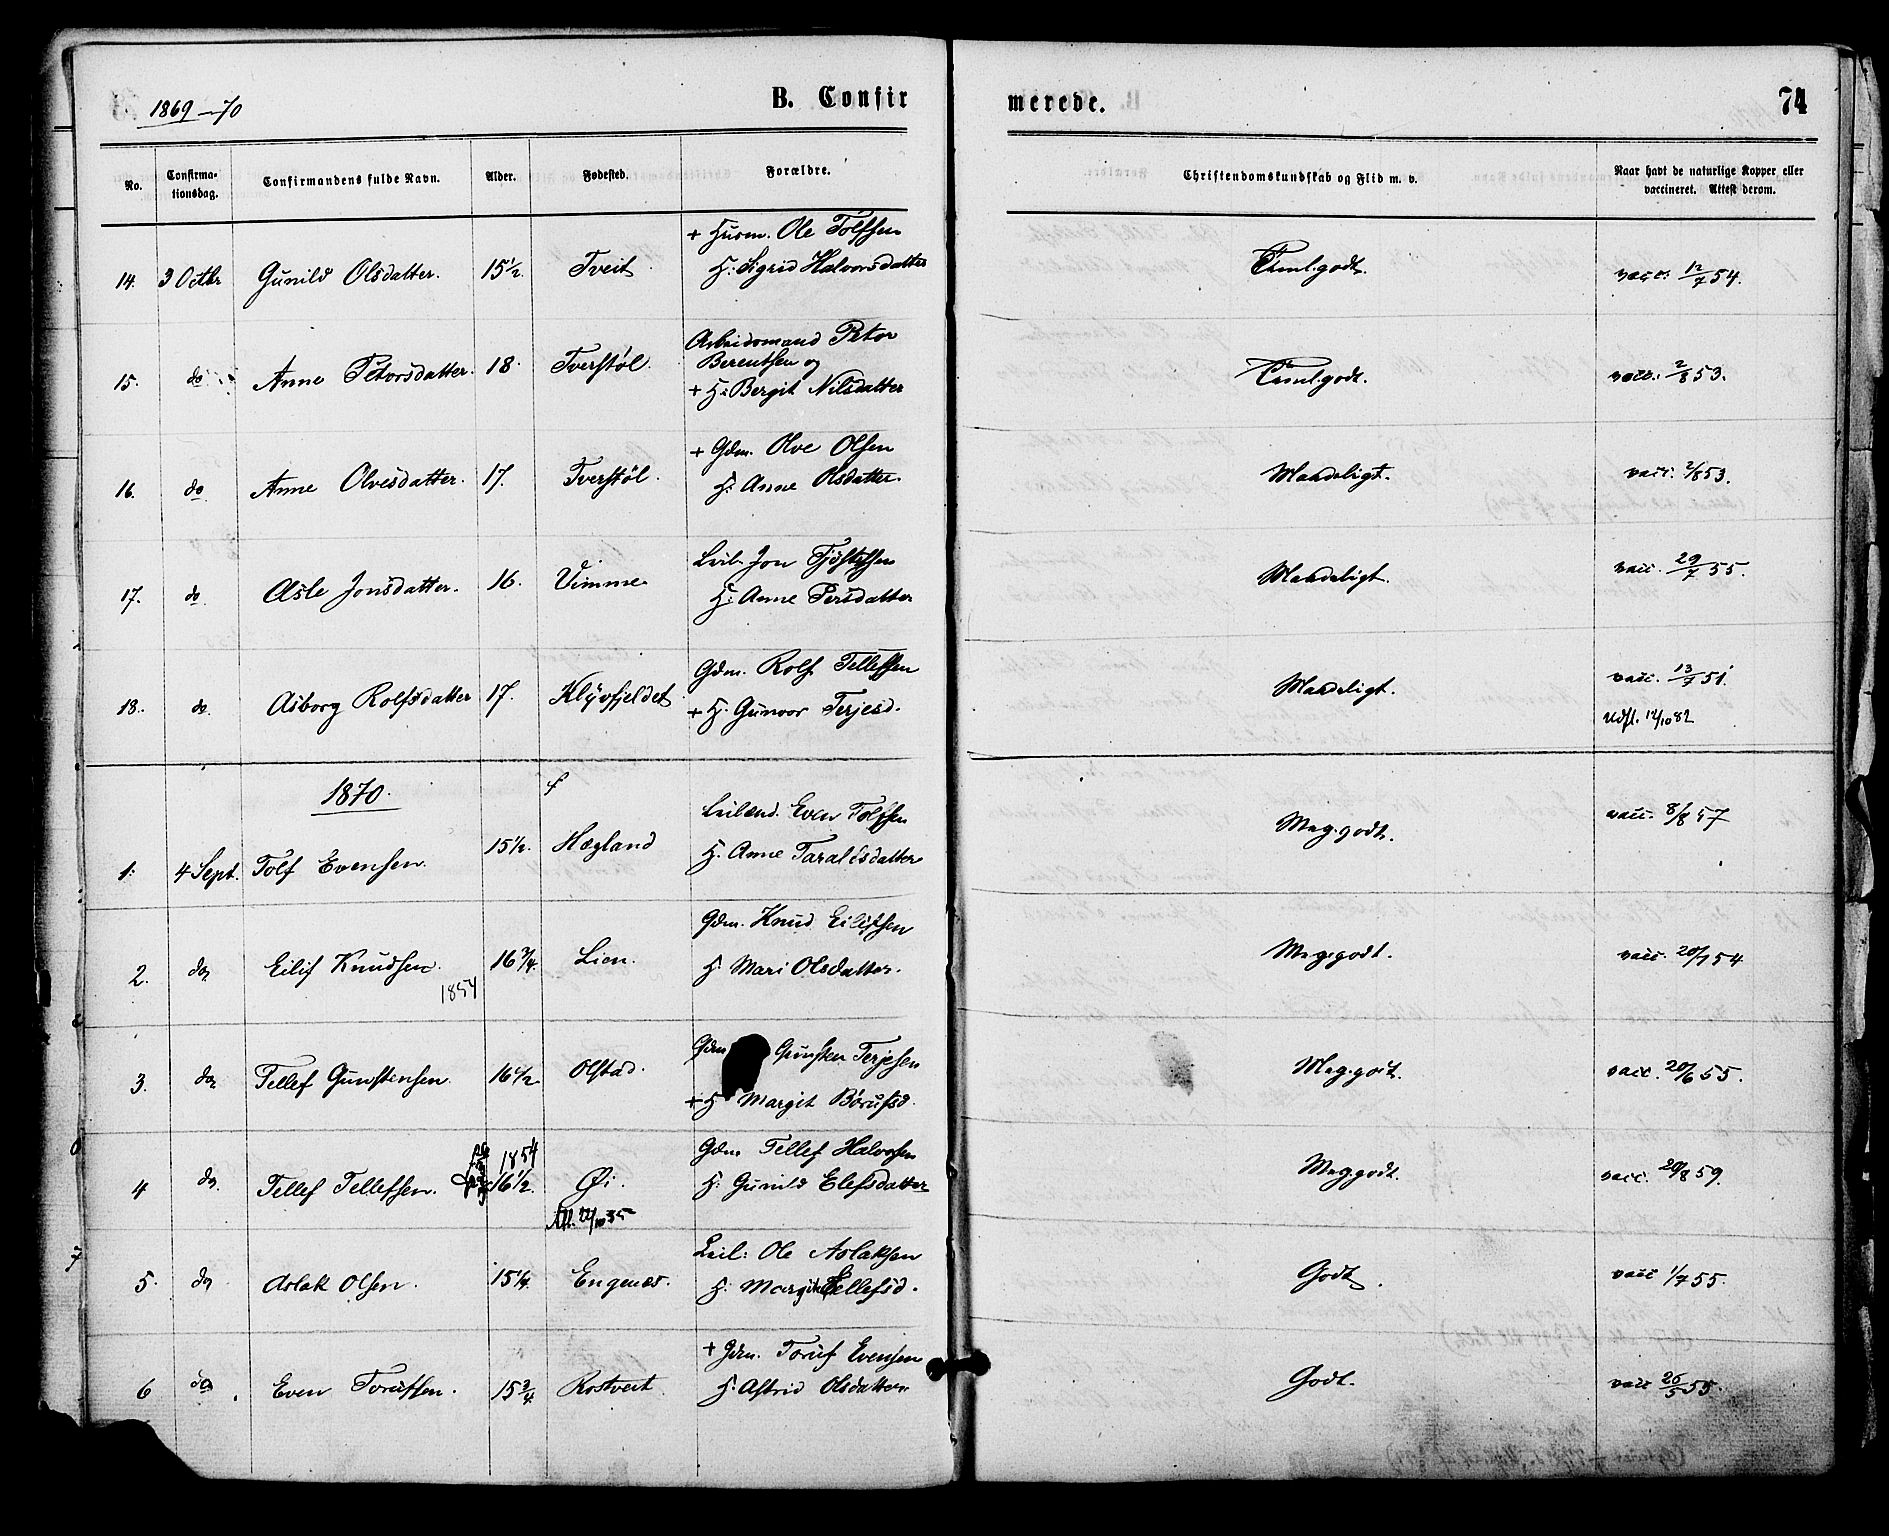 1869-70
B. Confirmerede.
74
No. Confirmationsdag. Confirmandens fulde Navn. Alder. Fødested. Forældre. Christendomskundskab og Flid m. v. Naar havt de naturlige Kopper eller vaccineret. Attest derom.
+ Husm. Ole Tolfsen
14. 3 Octbr Gunild Olsdatter. 15 1/2 Tveit H: Sigrid Halvorsdatter Teml. godt. vacc. 12/7 54.
Arbeidsmand Peter
Berentsen og
15. do Anne Petersdatter. 18. Tverstøl. + H: Bergit Nilsdatter Teml. godt. vacc. 2/8 53.
+ Gdm. Olve Olsen
16. do Anne Olvesdatter. 17. Tverstøl. H: Anne Olsdatter. Maadeligt. vacc. 2/8 53.
Leil. Jon Tjøstelsen
17. do Asle Jonsdatter. 16. Vimme H: Anne Persdatter Maadeligt. vacc. 29/7 55.
Gdm. Rolf Tellefsen
18. do Asborg Rolfsdatter 17. Klyvfjeldet + H. Gunvor Terjesd. Maadeligt. vacc. 13/7 51.
Udfl. 12/10 82
1870.
Leilænd. Even Tolfsen
1. 4 Sept. Tolf Evensen. 15 1/2. Hægland H. Anne Taraldsdatter Meg. godt. vacc. 8/8 57
Gdm. Knud Eilifsen
2. do Eilif Knudsen. 16 3/4. Lien. H Mari Olsdatter. Meg. godt. vacc. 20/7 54
1854
Gdm Gunsten Terjesen
3. do Tellef Gunstensen. 16 1/2 Olstad. + H Margit Børufsd. Meg. godt. vacc. 20/6 55.
1854
Gdm Tellef Halvorsen
4 do Tellef Tellefsen. 16 1/2. Øi. H. Gunild Elefsdatter Meg godt. vacc. 20/8 59.
Att. 22/10 35
Leil: Ole Aslaksen
5. do Aslak Olsen. 15 1/4. Engenæs. H. Margit Tellefsd. Godt. vacc 1/7 55.
+ Gdm. Toruf Evensen
6 do Even Torufsen. 15 3/4. Rostveit H: Astrid Olsdatter Godt. vacc 26/5 55.